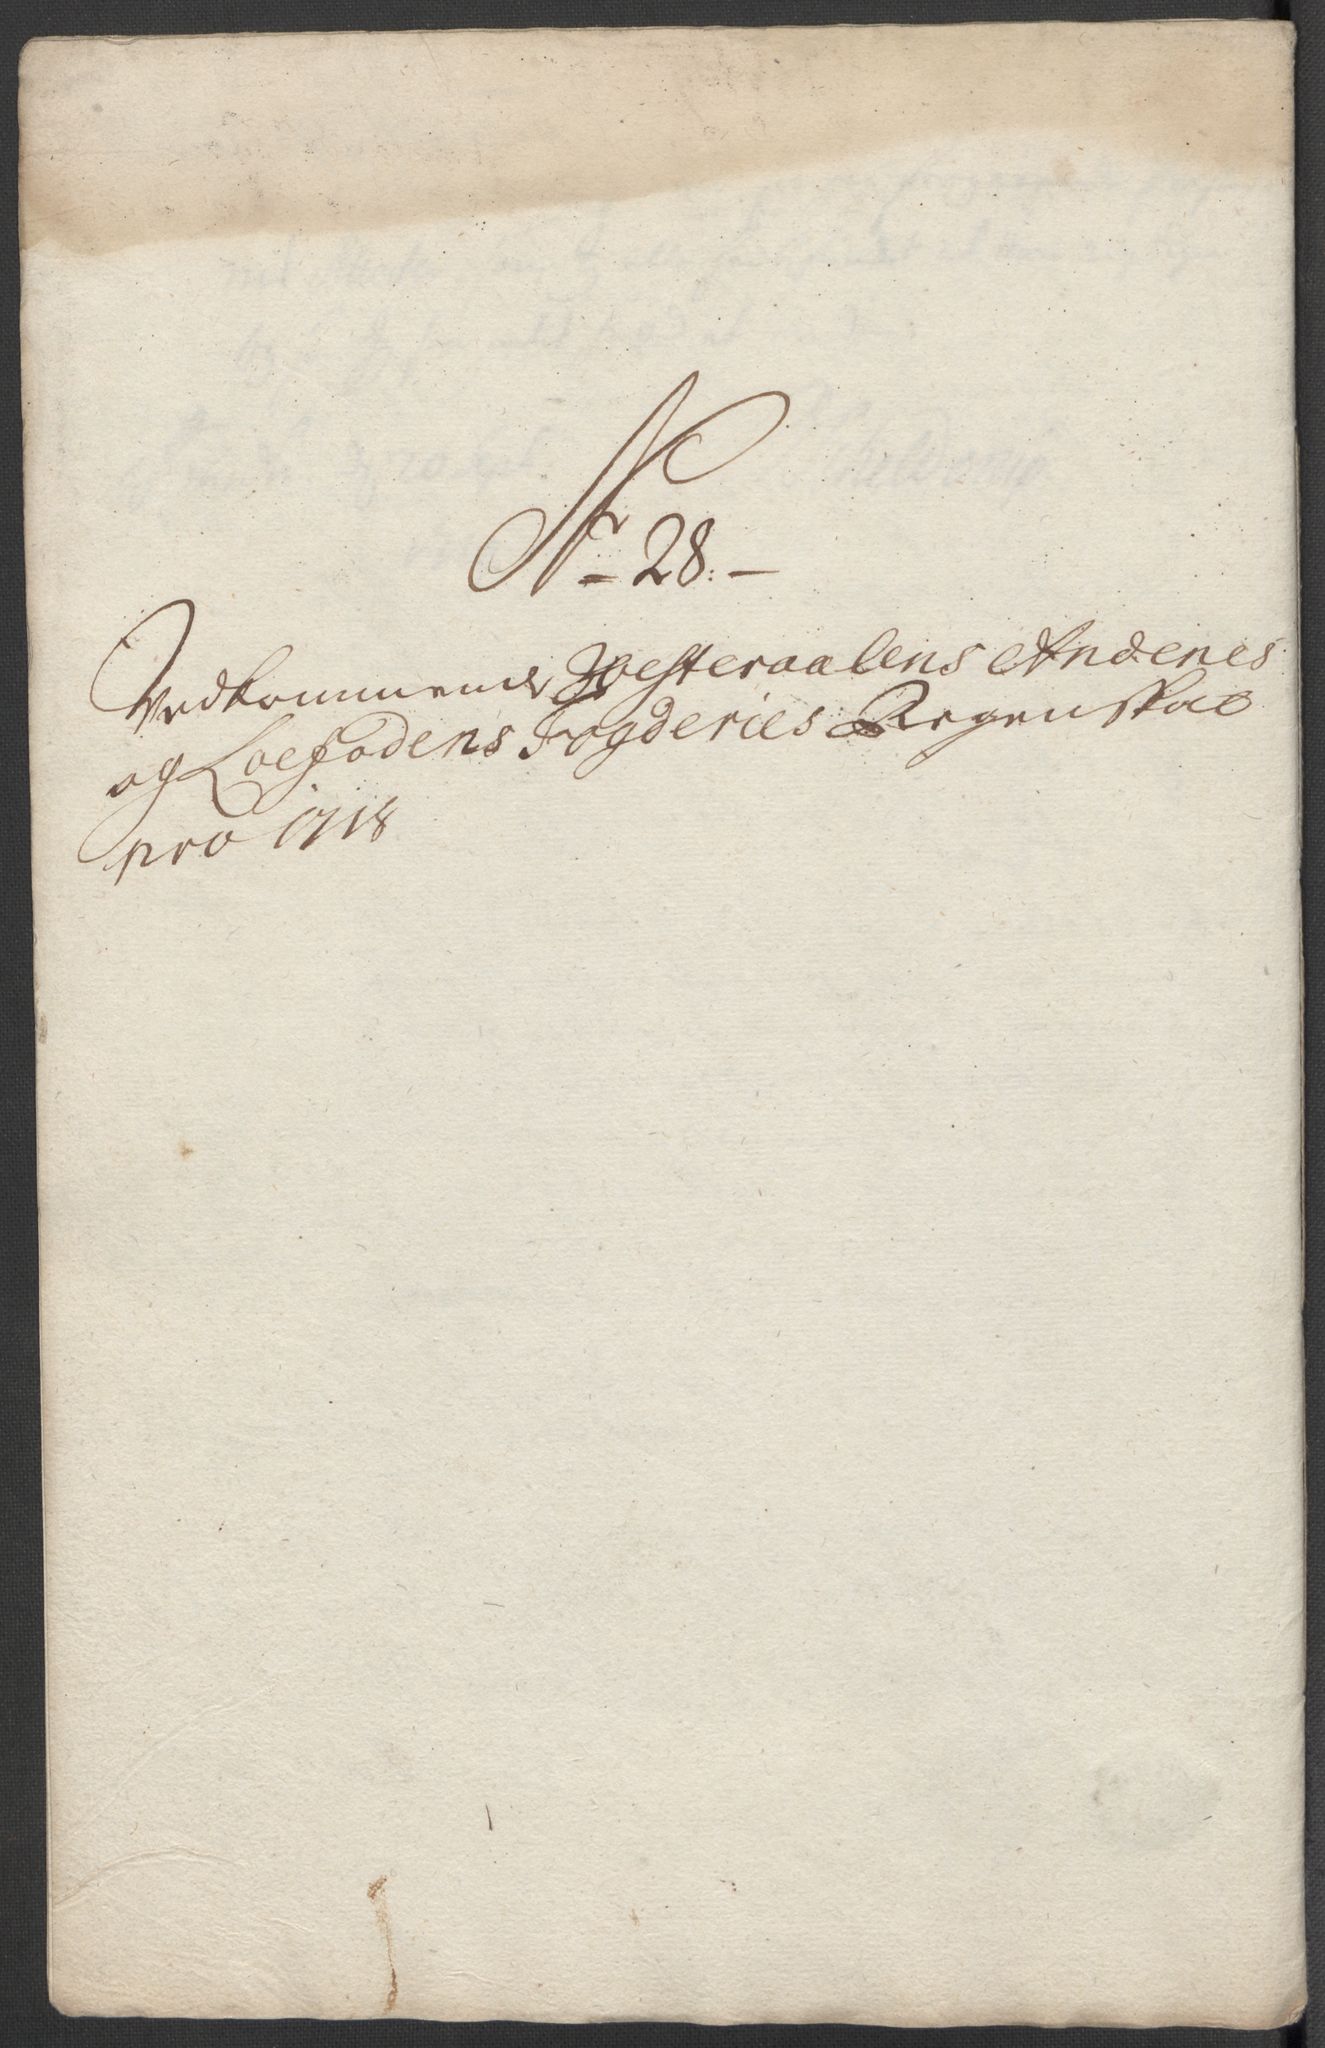 Nr 28.
Vedkommende Westeraalens Andenes
og Loefodens Fogderies Regenskab
pro 1718